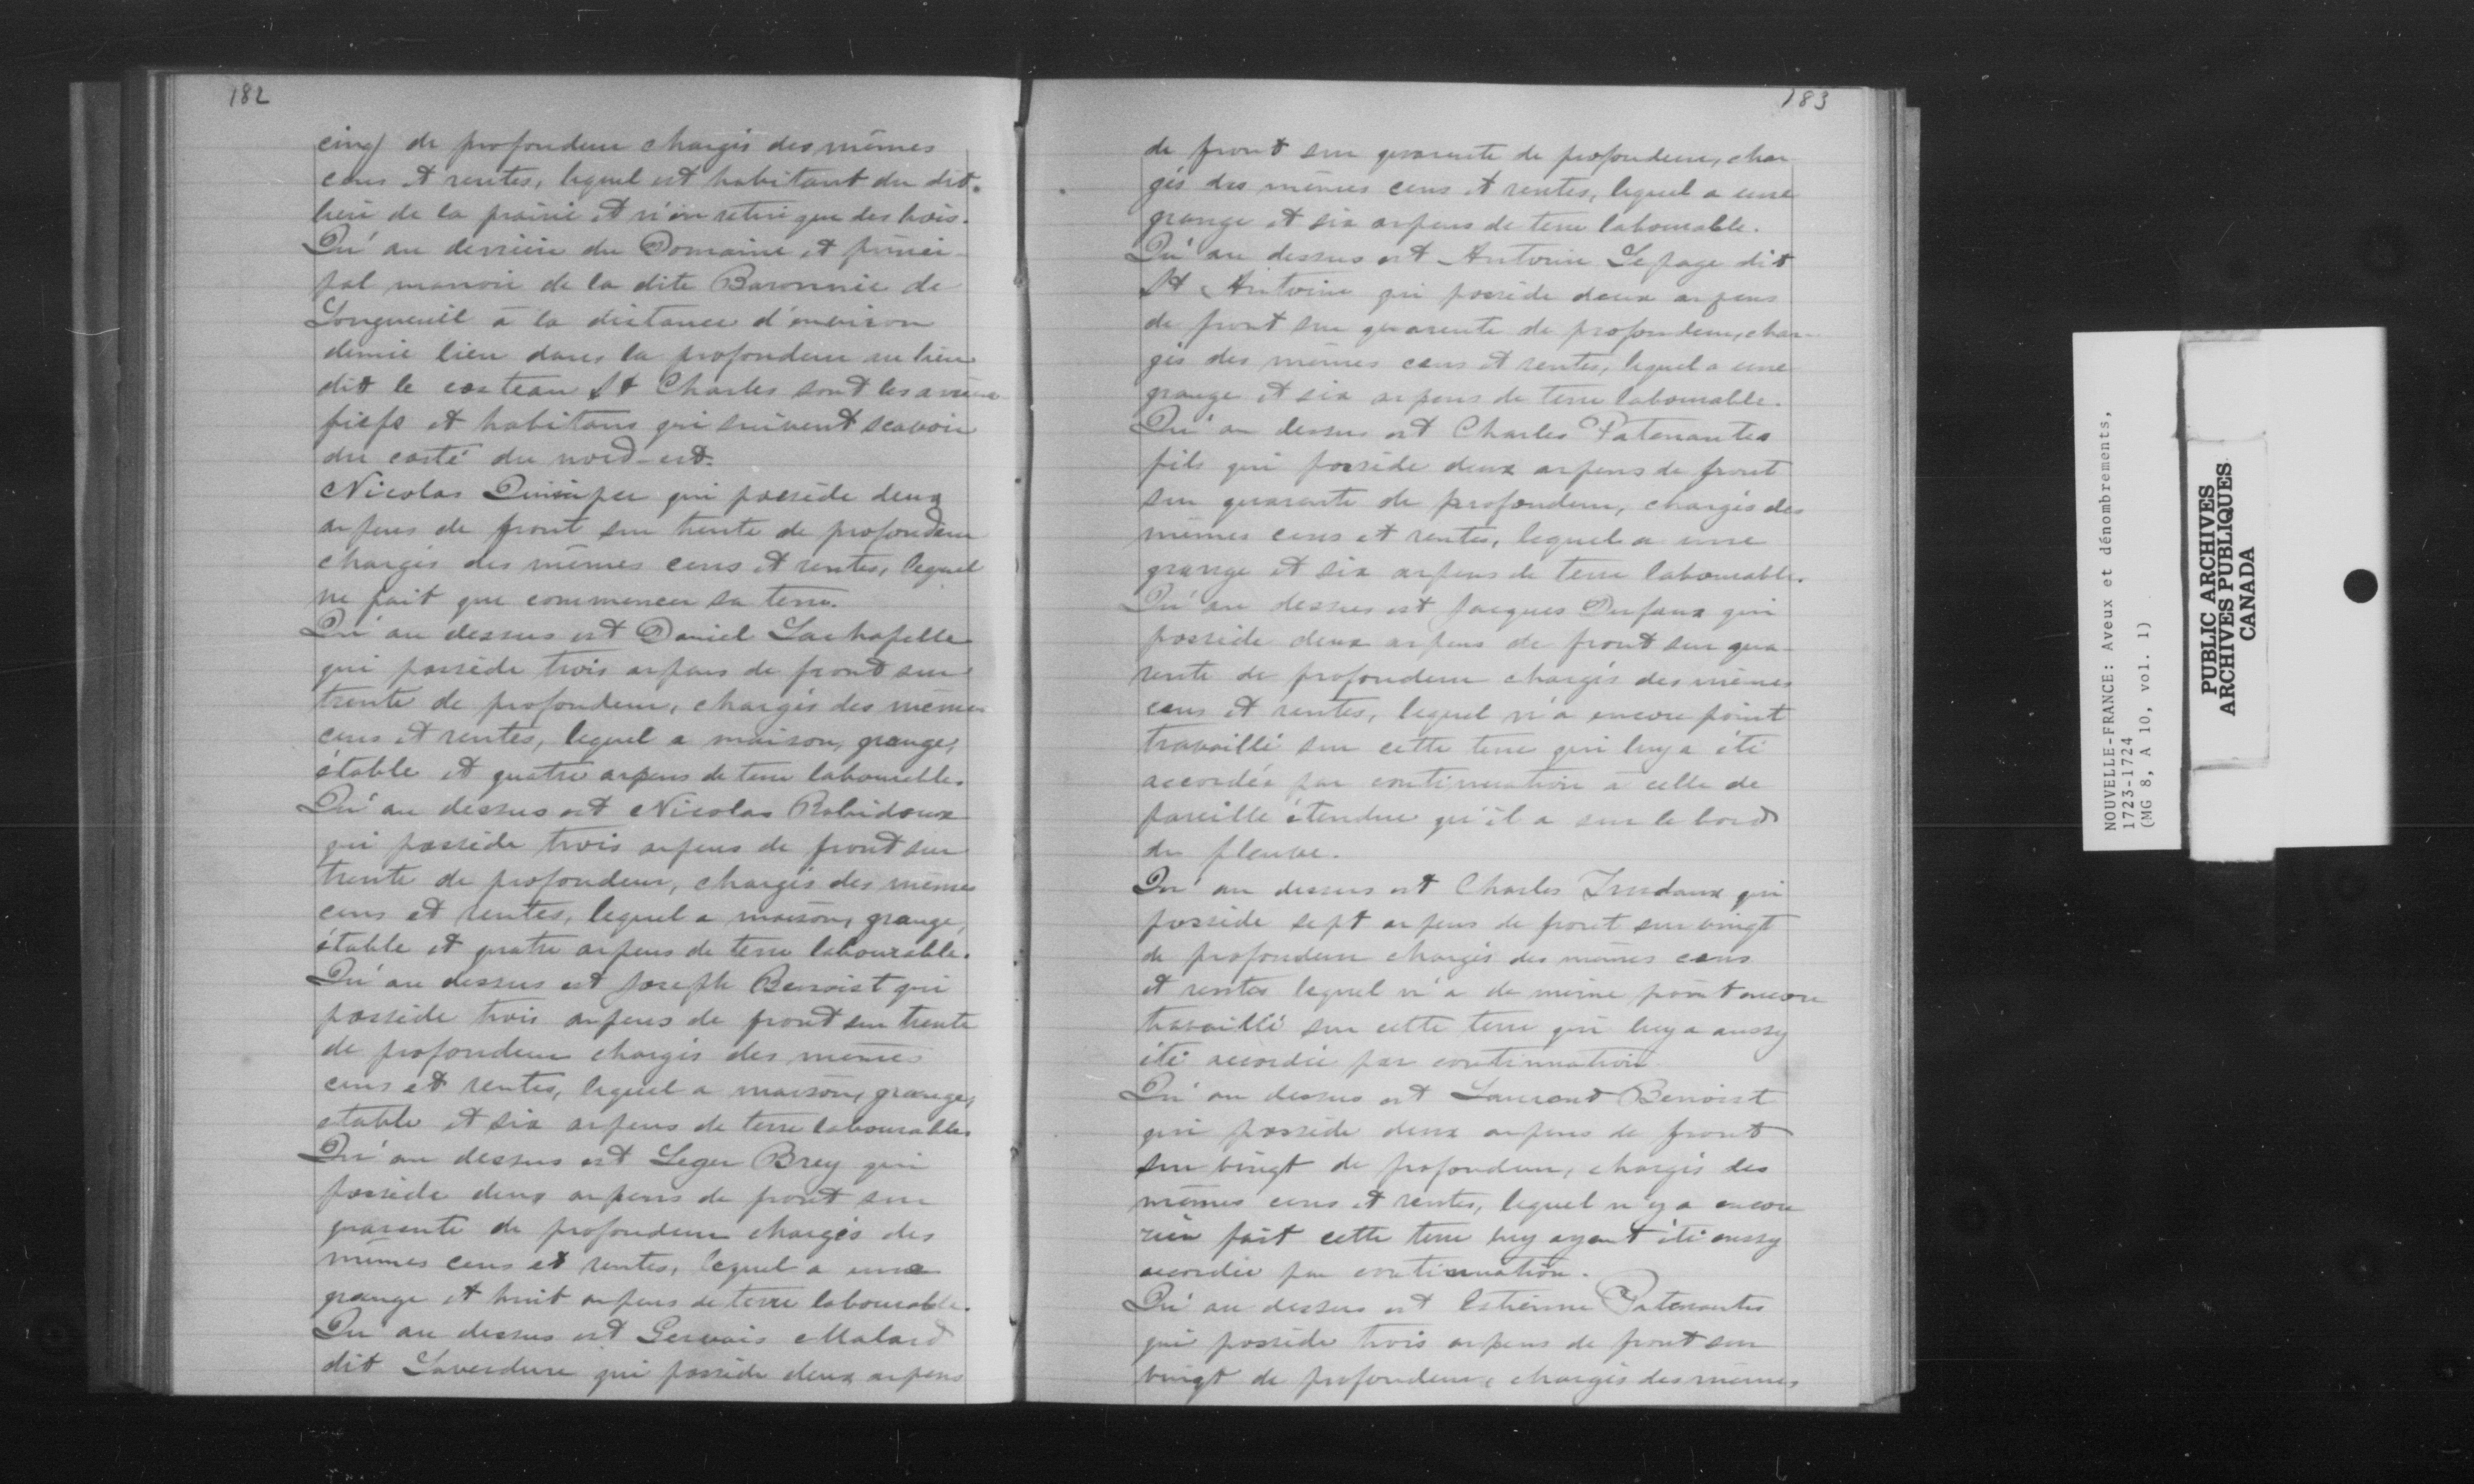 182
cinq de profondeur chargés des mêmes
cens et rentes, lequel est habitant du dit
lieu de la prairie et n'en retire que des bois.
Qu'au derrière du Domaine et princi-
pal manoir de la dite Baronnie de
Longueuil à la distance d'environ
demie lieu dans la profondeur au lieu
dit le costeau St Charles sont les arrière
fiefs et habitans qui suivent scavoir
du costé du nord-est.
Nicolas qui possède deux
arpens de front sur trente de profondeur
chargés des mêmes cens et rentes, lequel
ne fait que commencer sa terre.
Qu'au dessus est Daniel Lachapelle
qui possède trois arpens de front sur
trente de profondeur, chargés des mêmes
cens et rentes, lequel a maison, grange,
étable et quatre arpens de terre labourable.
Qu'au dessus est Nicolas Robidoux
qui possède trois arpens de front sur
trente de profondeur, chargés des mêmes
cens et rentes, lequel a maison, grange,
étable et quatre arpens de terre labourable.
Qu'au dessus est Joseph Benoist qui
possède trois arpens de front sur trente
de profondeur chargés des mêmes
cens et rentes, lequel a maison, grange,
etable et six arpens de terre labourable.
Qu'au dessus est Leger Brey qui
possède deux arpens de front sur
quarente de profondeur chargés des
mêmes cens et rentes, lequel a une
grange et huit arpens de terre labourable.
Qu'au dessus est Gervais Malard
dit Laverdure qui possède deux arpens
183
de front sur quarente de profondeur, char
gés des mêmes cens et rentes, lequel a une
grange et six arpens de terre labourable.
Qu'au dessus est Antoine Lepage dit
St Antoine qui possède deux arpens
de front sur quarente de profondeur, char-
gés des mêmes cens et rentes, lequel a une
grange et six arpens de terre labourable.
Qu'au dessus est Charles Patenautes
fils qui possède deux arpens de front
sur quarente de profondeur, chargés des
mêmes cens et rentes, lequel a une
grange et six arpens de terre labourable.
Qu'au dessus est Jacques Dufaux qui
possède deux arpens de front sur qua-
rente de profondeur chargés des mêmes
cens et rentes, lequel n'a encore point
travaillé sur cette terre qui luy a été
accordée par continuation à celle de
pareille étendue qu'il a sur le bord
du fleuve.
Qu'au dessus est Charles Trudaux qui
possède sept arpens de front sur vingt
de profondeur chargés des mêmes cens
et rentes lequel n'a de même point encore
travaillé sur cette terre qui luy a aussy
été accordée par continuation.
Qu'au dessus est Laurent Benoist
qui possède deux arpens de front
sur vingt de profondeur, chargés des
mêmes cens et rentes, lequel n'y a encore
rien fait cette terre luy ayant été aussy
accordée par continuation.
Qu'au dessus est Estienne Patenautes
qui possède trois arpens de front sur
vingt de profondeur, chargés des mêmes
NOUVELLE-FRANCE: Aveux et dénombrements,
1723-1724
(MG 8, A 10, vol. 1)
PUBLIC ARCHIVES
ARCHIVES PUBLIQUES
CANADA